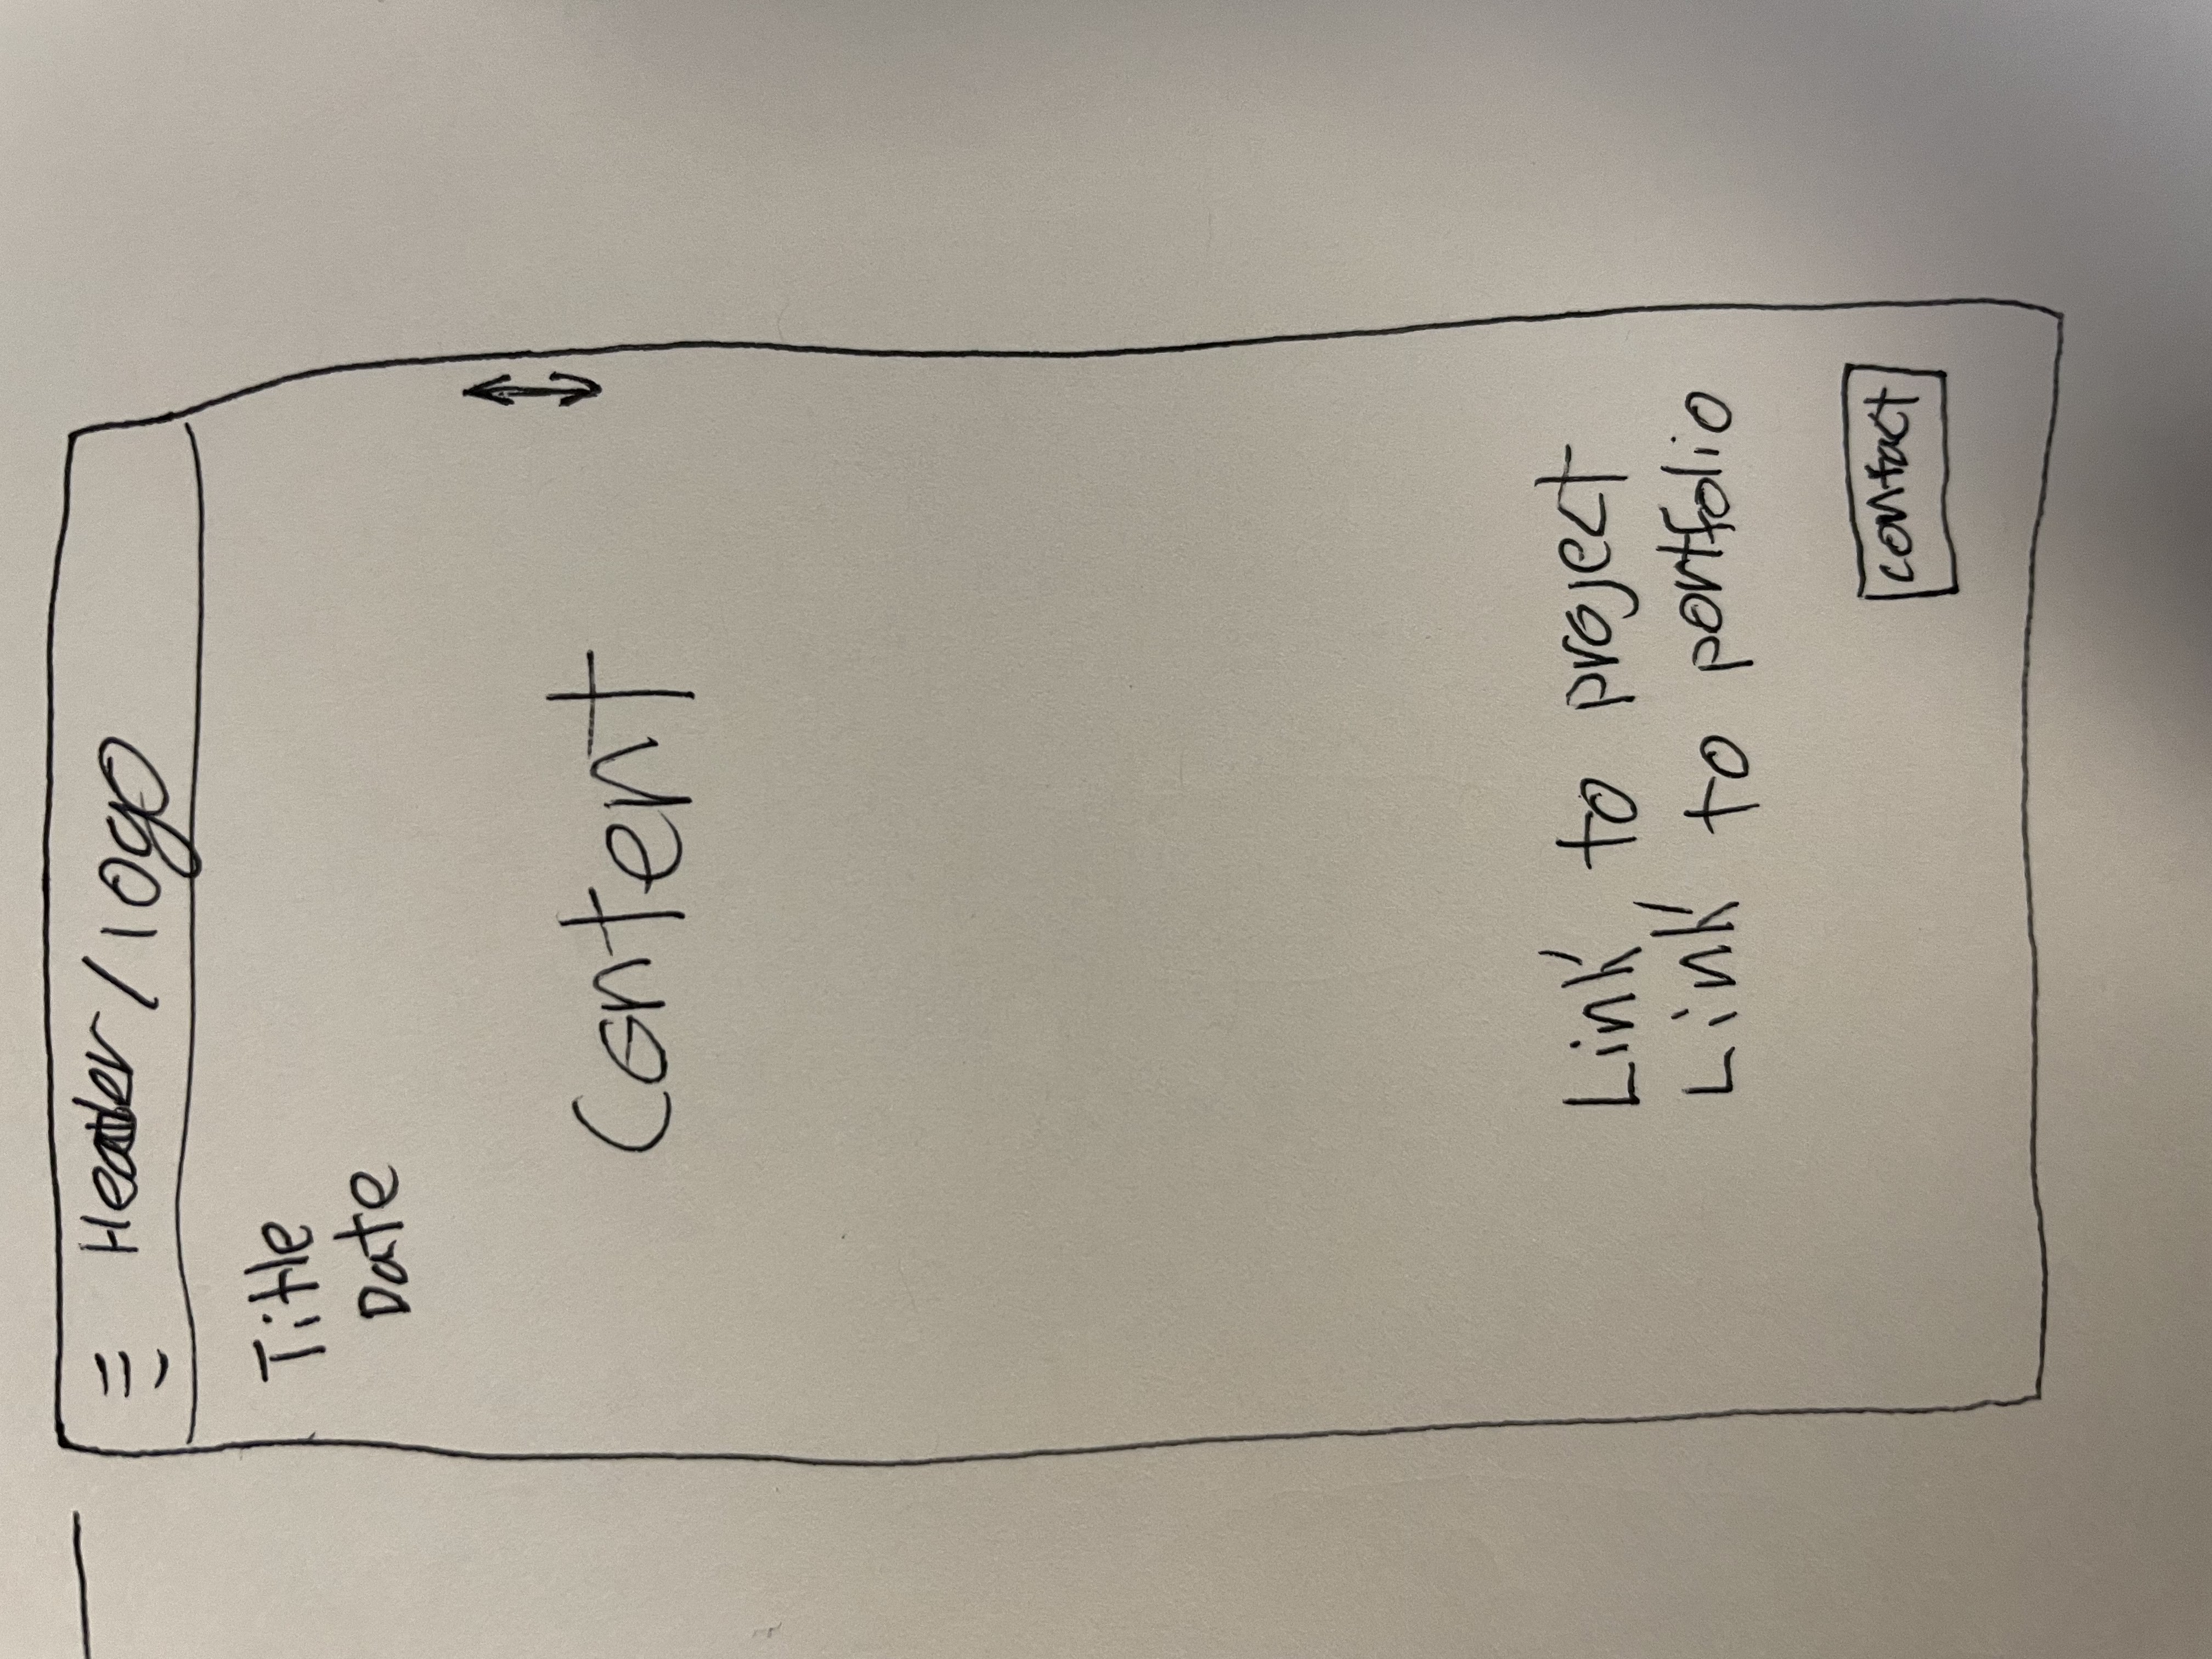 Header / logo
Title
Date
Content
Link to project
Link to portfolio
contact